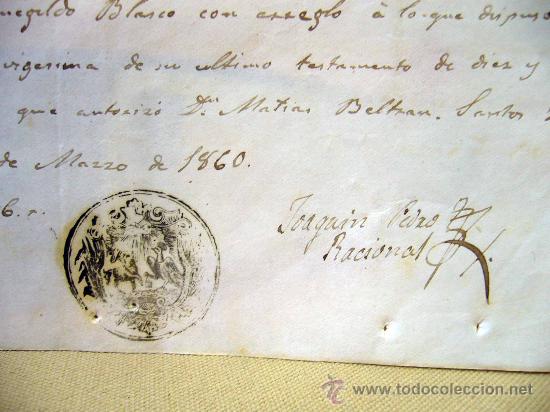 negildo Blasco con arreglo à lo que dispuso
vigesima de su ultimo testamento de diez y
que autorizó Dn. Matias Beltran. Santos
de Marzo de 1860.
6. r.
Joaquin Pedro
Racional
www.todocoleccion.net